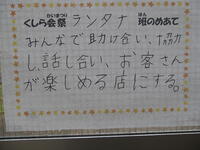 くしら会祭 ランタナ 班のめあて
かいまつり はん
みんなで助け合い、協力
し、話し合い、お客さん
が楽しめる店にする。